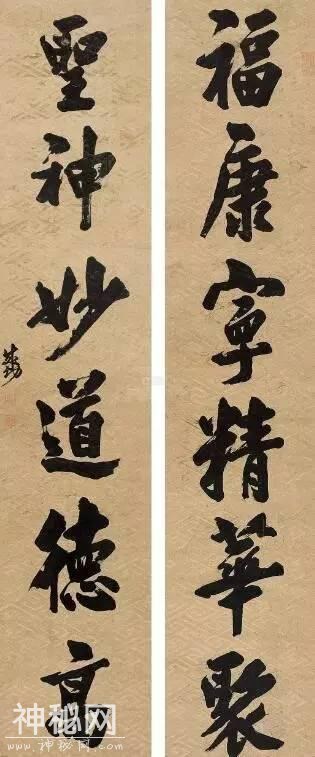 福康寧精華聚
聖神妙道德高
神秘网
www.神秘网.com